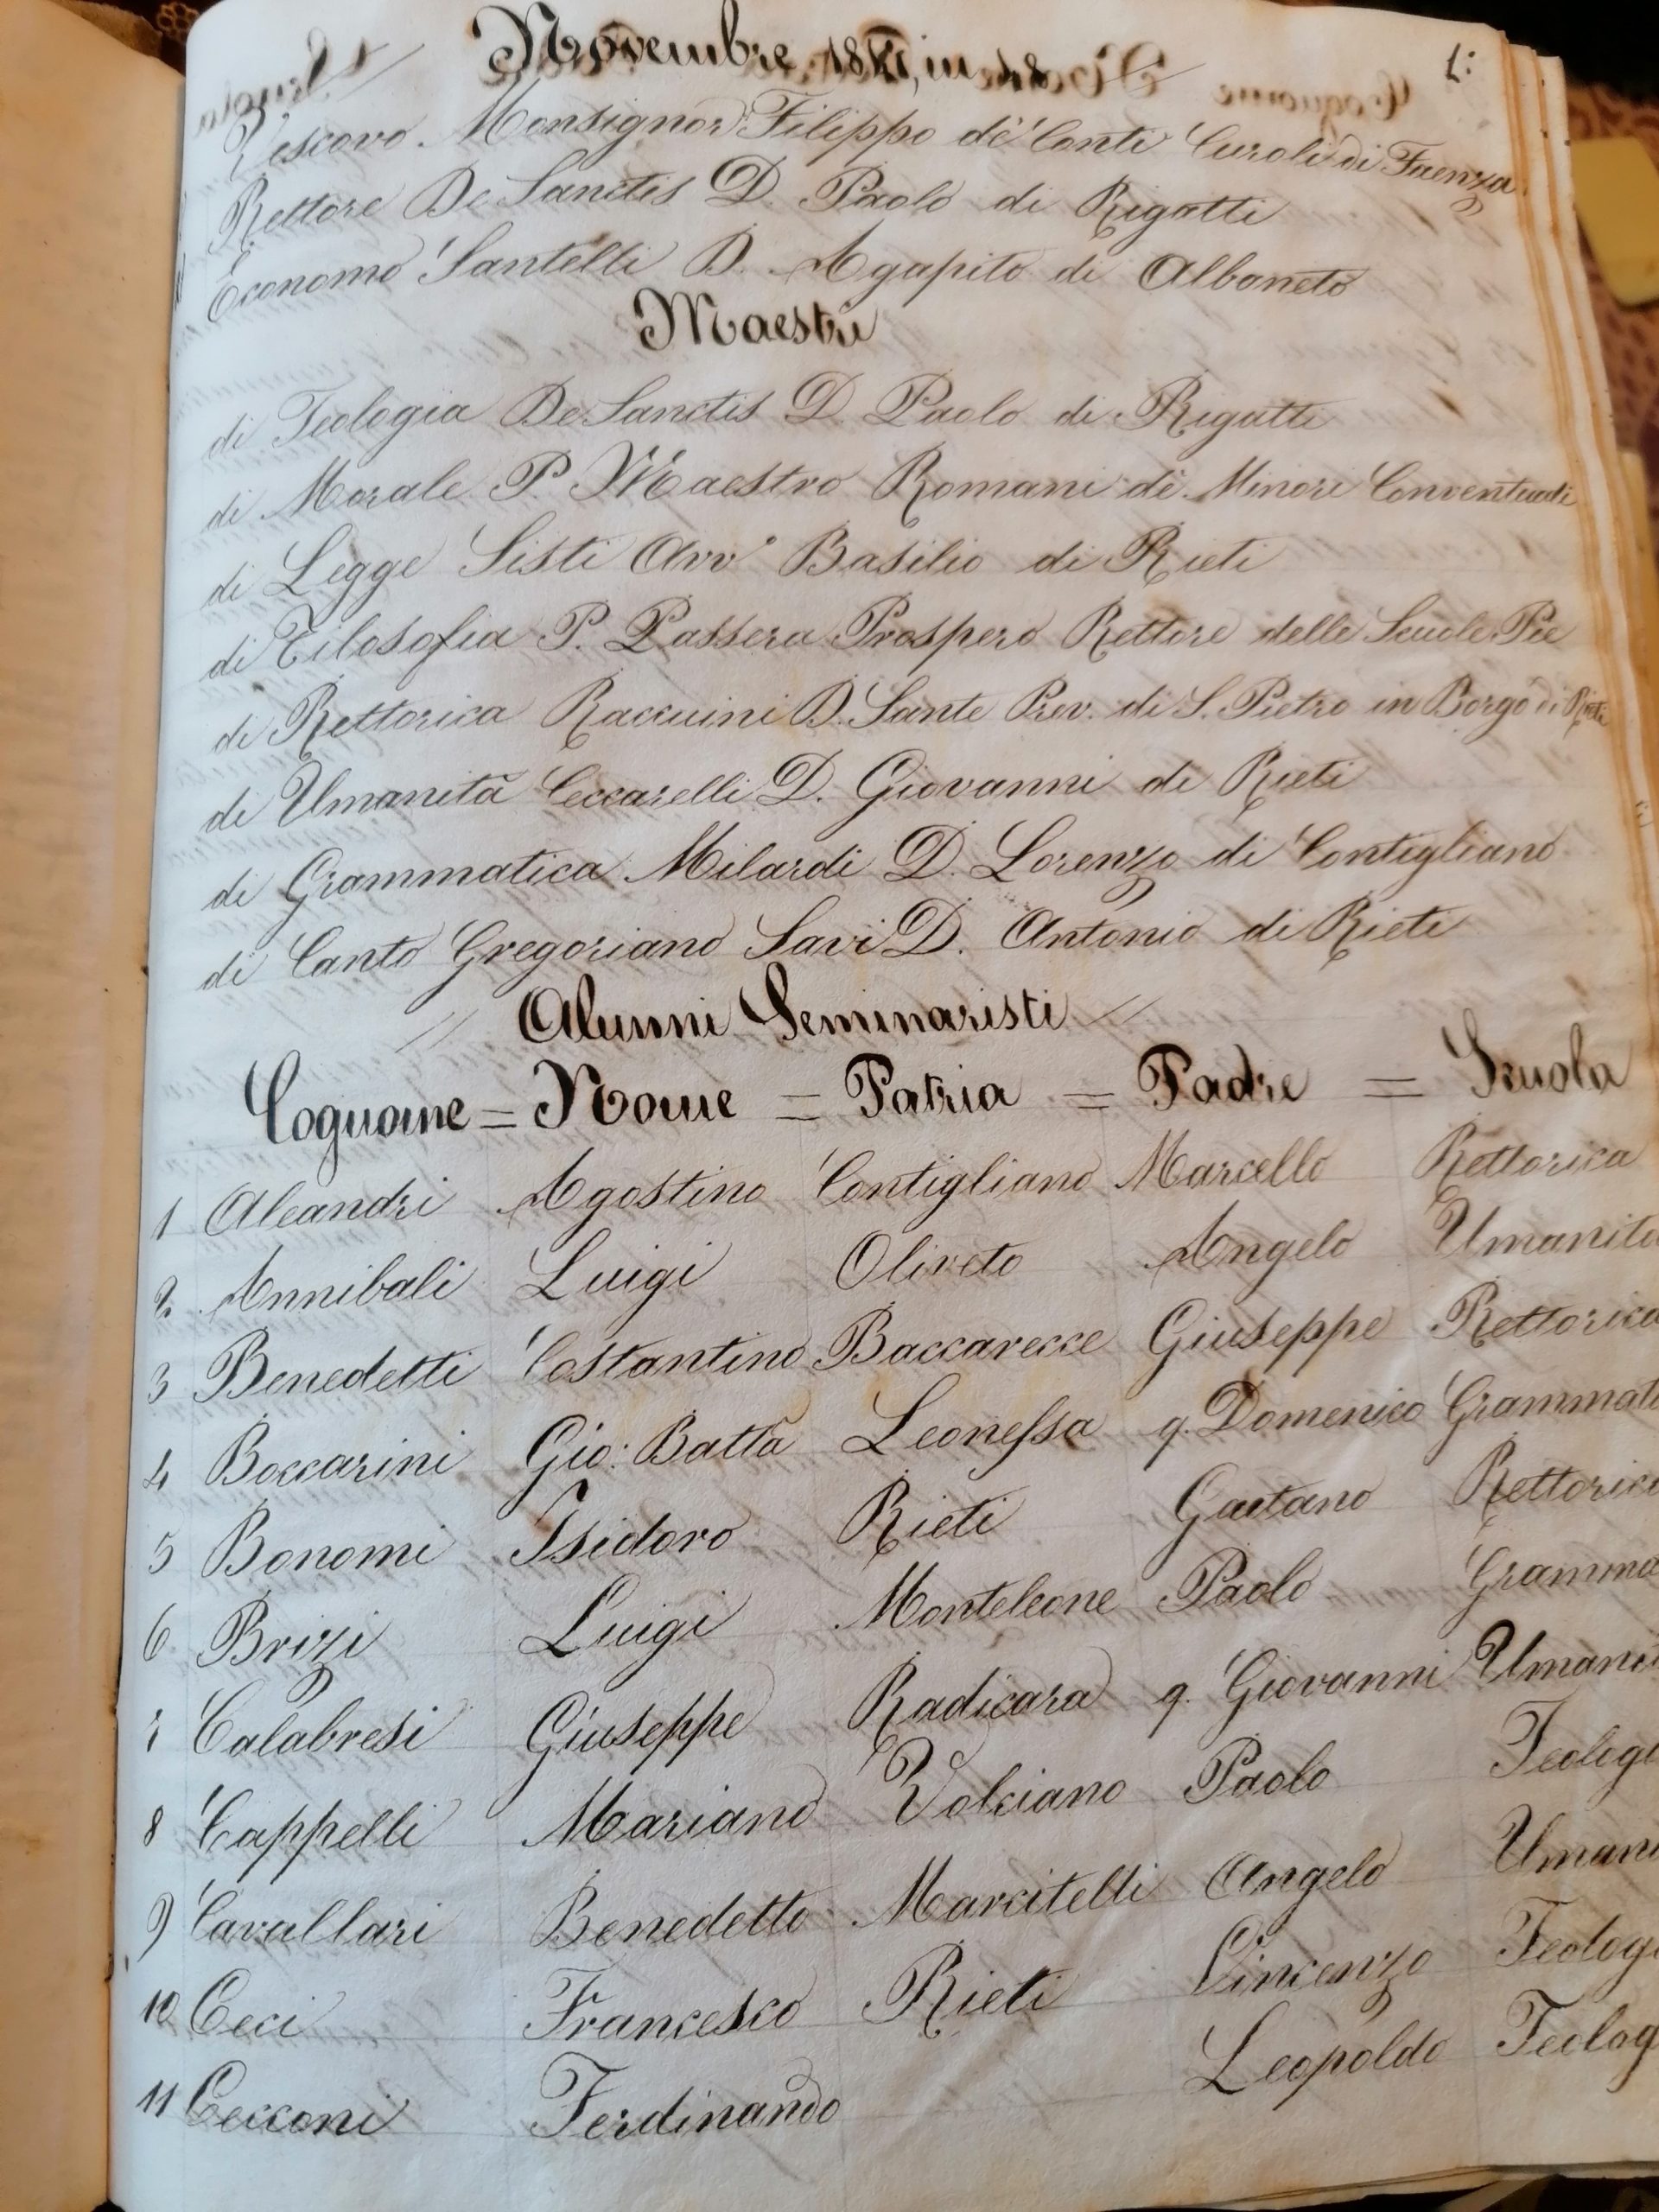 Novembre 1847, in 48
1:
Vescovo Monsignor Filippo de' Conti Curoli di Faenza
Rettore De Sanctis D. Paolo di Rigatti
Economo Santelli D. Agapito di Albaneto
Maestri
di Teologia De Sanctis D. Paolo di Rigatti
di Morale P. Maestro Romani de' Minori Conventuali
di Legge Sisti Avvo Basilio di Rieti
di Filosofia P. Passera Prospero Rettore delle Scuole Pie
di Rettorica Raccuini D. Sante Prev. di S. Pietro in Borgo di Rieti
di Umanità Ceccarelli D. Giovanni di Rieti
di Grammatica Milardi D. Lorenzo di Contigliano
di Canto Gregoriano Savi D. Antonio di Rieti
// Alunni Seminaristi //
Cognome = Nome = Patria = Padre = Scuola
1 Aleandri Agostino Contigliano Marcello Rettorica
2 Annibali Luigi Oliveto Angelo Umanità
3 Benedetti Costantino Baccarecce Giuseppe Rettorica
4 Boccarini Gio: Batta Leonessa q. Domenico Grammati
5 Bonomi Isidoro Rieti Gaetano Rettorica
6 Brizi Luigi Monteleone Paolo Gramma
7 Calabresi Giuseppe Radicara q. Giovanni Umani
8 Cappelli Mariano Volciano Paolo Teologi
9 Cavallari Benedetto Marcitelli Angelo Umani
10 Ceci Francesco Rieti Vincenzo Teologi
11 Cecconi Ferdinando Leopoldo Teolog